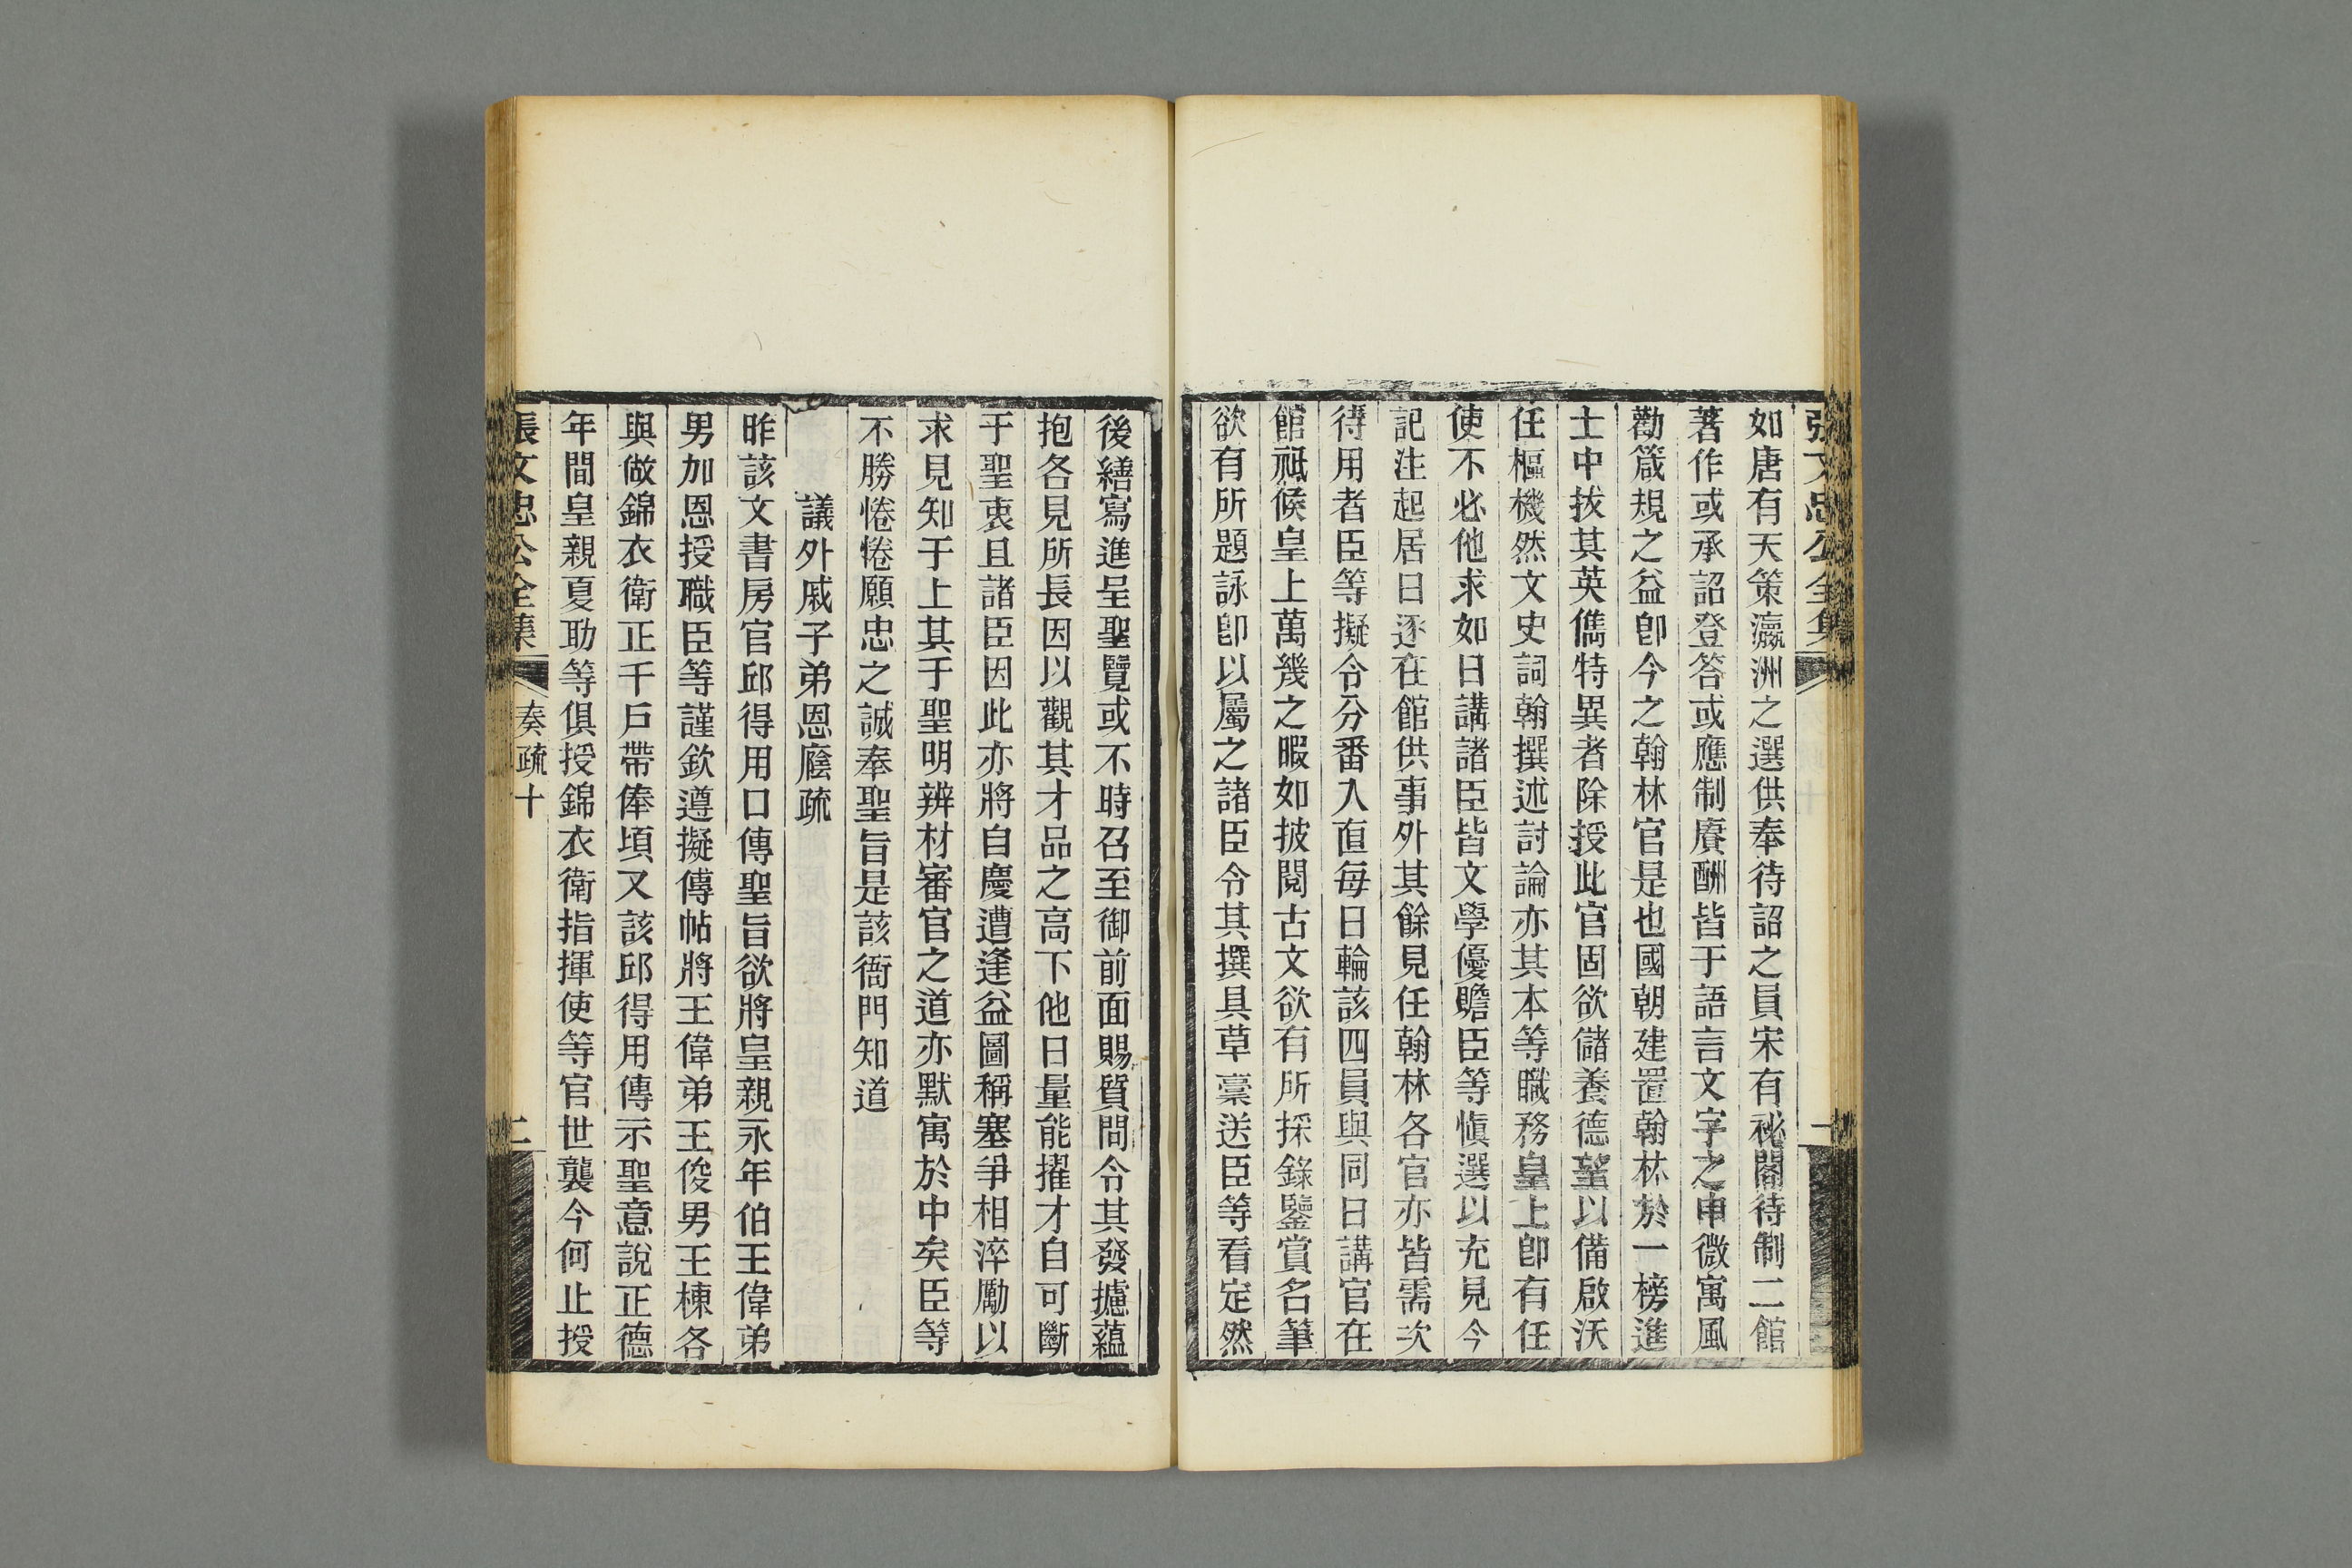 張文忠公全集
一
如唐有天策瀛洲之選供奉待詔之員宋有祕閣待制二館
著作或承詔登答或應制賡酬皆于語言文字之中微寓風
勸箴規之益卽今之翰林官是也國朝建置翰林於一榜進
士中拔其英儁特異者除授此官固欲儲養德望以備啟沃
任樞機然文史詞翰撰述討論亦其本等職務皇上卽有任
使不必他求如日講諸臣皆文學優贍臣等愼選以充見今
記注起居日逐在館供事外其餘見任翰林各官亦皆需次
待用者臣等擬令分番入直每日輪該四員與同日講官在
館祗候皇上萬幾之暇如披閱古文欲有所採錄鑒賞名筆
欲有所題詠卽以屬之諸臣令其撰具草稾送臣等看定然
後繕寫進呈聖覽或不時召至御前面賜質問令其發攄蘊
抱各見所長因以觀其才品之高下他日量能擢才自可斷
于聖衷且諸臣因此亦將自慶遭逢益圖稱塞爭相淬勵以
求見知于上其于聖明辨材審官之道亦默寓於中矣臣等
不勝惓惓願忠之誠奉聖旨是該衙門知道
議外戚子弟恩廕疏
昨該文書房官邱得用口傳聖旨欲將皇親永年伯王偉弟
男加恩授職臣等謹欽遵擬傳帖將王偉弟王俊男王棟各
與做錦衣衛正千戶帶俸頃又該邱得用傳示聖意說正德
年間皇親夏助等俱授錦衣衛指揮使等官世襲今何止授
張文忠公全集
奏疏十
二